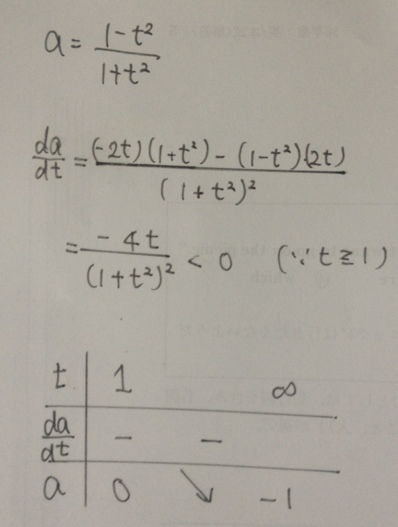 a = (1-t²)/(1+t²)
da/dt = ((-2t)(1+t²) - (1-t²)(2t))/((1+t²)²)
= (-4t)/((1+t²)²) < 0 (∵ t ≧ 1)
t | 1 ∞
da/dt | - -
a | 0 ↘ -1